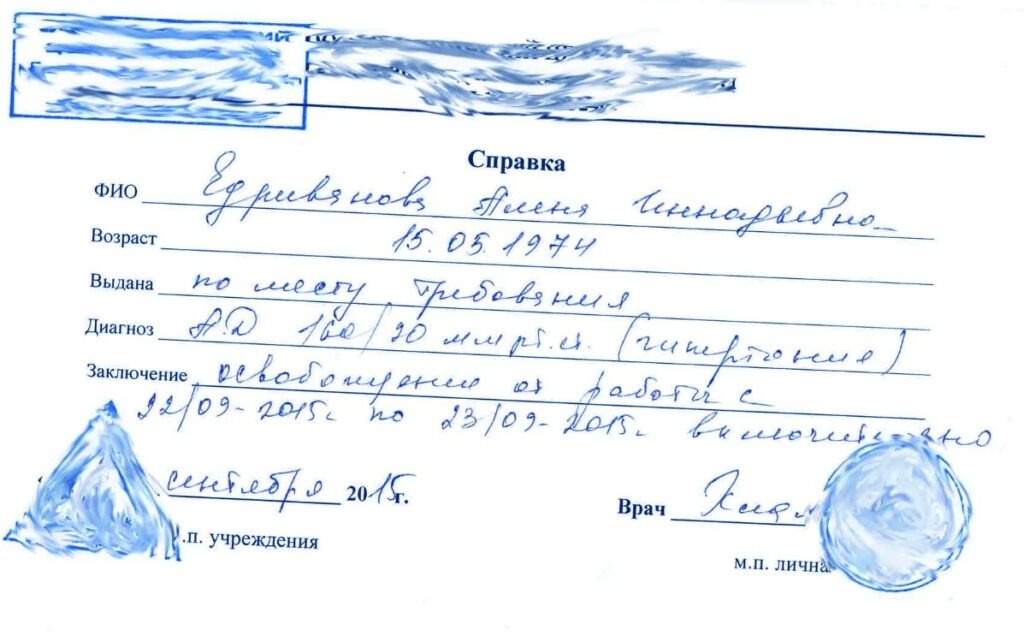 Справка
ФИО Едриванова Алена Иннадьевно
Возраст 15.05.1974
Выдана по месту требования
Диагноз А.Д 160/90 мм рт.ст. (гипертония)
Заключение освобождение от работы с
22/09-2015г по 23/09-2015г. включительно
сентября 2015г.
Врач
.п. учреждения
м.п. лична